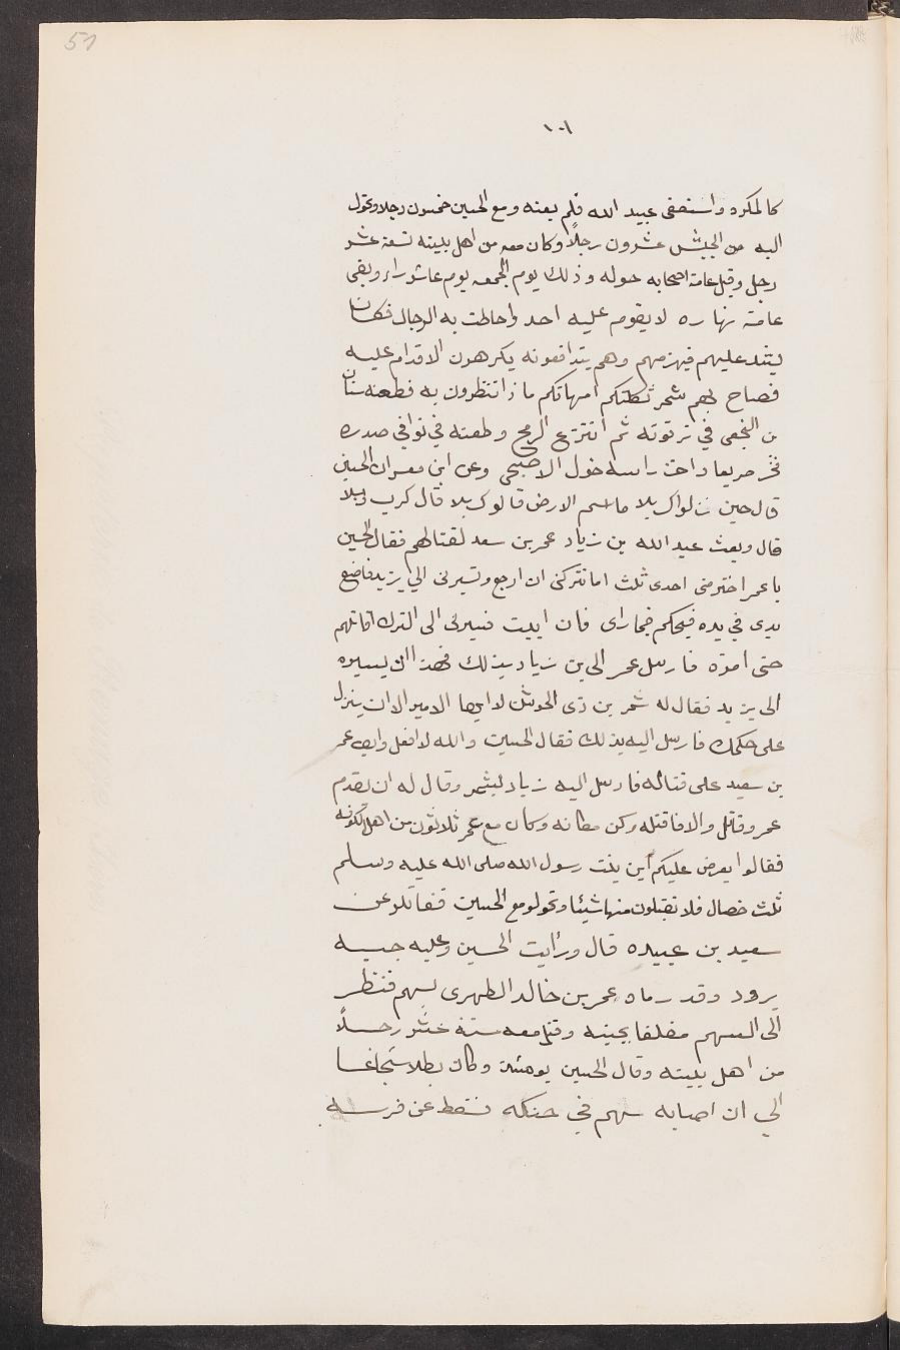 51
١٠١
كالمكره واستعفى عبيد الله فلم يعفه ومع الحسين خمسون رجلا وتحول
اليه من الجيش عشرون رجلًا وكان معه من اهل بيته تسعة عشر
رجل وقتل عامة اصحابه حوله وذلك يوم الجمعه يوم عاشوراء وبقى
عامة نهاره لا يقوم عليه احد واحاطت به الرجال فكان
يشد عليهم فيهزمهم وهم يتدافعونه يكرهون الاقدام عليه
فصاح بهم شمر ثكلتكم امهاتكم ماذا تنتظرون به فطعنه سنان
بن النخعى في ترقوته ثم انتزع الرمح وطعنه في نوافي صدره
فخر صريعا واحتز راسه خول الاصبحى وعن ابن معــ ان الحسين
قال حين نزلوا كربلا ما اسم الارض قالوا كربلا قال كرب وبلا
قال وبعث عبد الله بن زياد عمر بن سعد لقتالهم فقال الحسين
يا عمر اختر منى احدى ثلث اما تتركنى ان ارجع وتسيرنى الي يزيد فاضع
يدى في يده فيحكم فيما راى فان ابيت فسيرنى الى الترك اقاتلهم
حتى اموت فارسل عمر الى بن زياد بذلك فهم ان يسيره
الى يزيد فقال له شمر بن ذى الجوشن لا ايها الامير الا ان ينزل
على حكمك فارسل اليه بذلك فقال الحسين والله لا افعل وابى عمر
بن سعيد على قتاله فارسل اليه زياد لبشمر وقال له ان تقدم
عمر وقاتل والا فاقتله وكن مكانه وكان مع عمر ثلاثون من اهل الكوفه
فقالوا يعرض عليكم ابن بنت رسول الله صلى الله عليه وسلم
ثلث خصال فلا تقبلون منها شيئا وتحولو مع الحسين فقاتلو عن
سعيد بن عبيده قال ورايت الحسين وعليه جبه
برود وقد رماه عمر بن خالد الطهرى بسهم فنظر
الى السهم معلقا بجبته وقتل معه ستة عشر رجلًا
من اهل بيته وقال الحسين يومئذ وكان بطلا شجاعا
الي ان اصابه سهم في حنكه فسقط عن فرسه